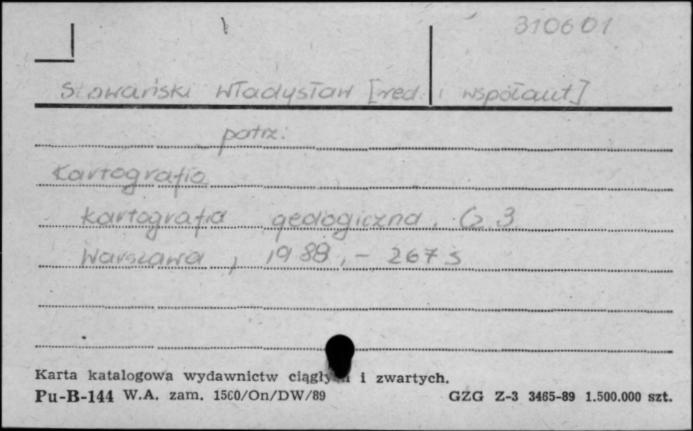 310601
Sławański Władysław [red. i współaut]
patrz:
Kartografia
kartografia geologiczna. Cz 3
Warszawa, 1988, - 267 s
Karta katalogowa wydawnictw ciągłych i zwartych.
Pu-B-144 W.A. zam. 1500/On/DW/89 GZG Z-3 3465-89 1.500.000 szt.